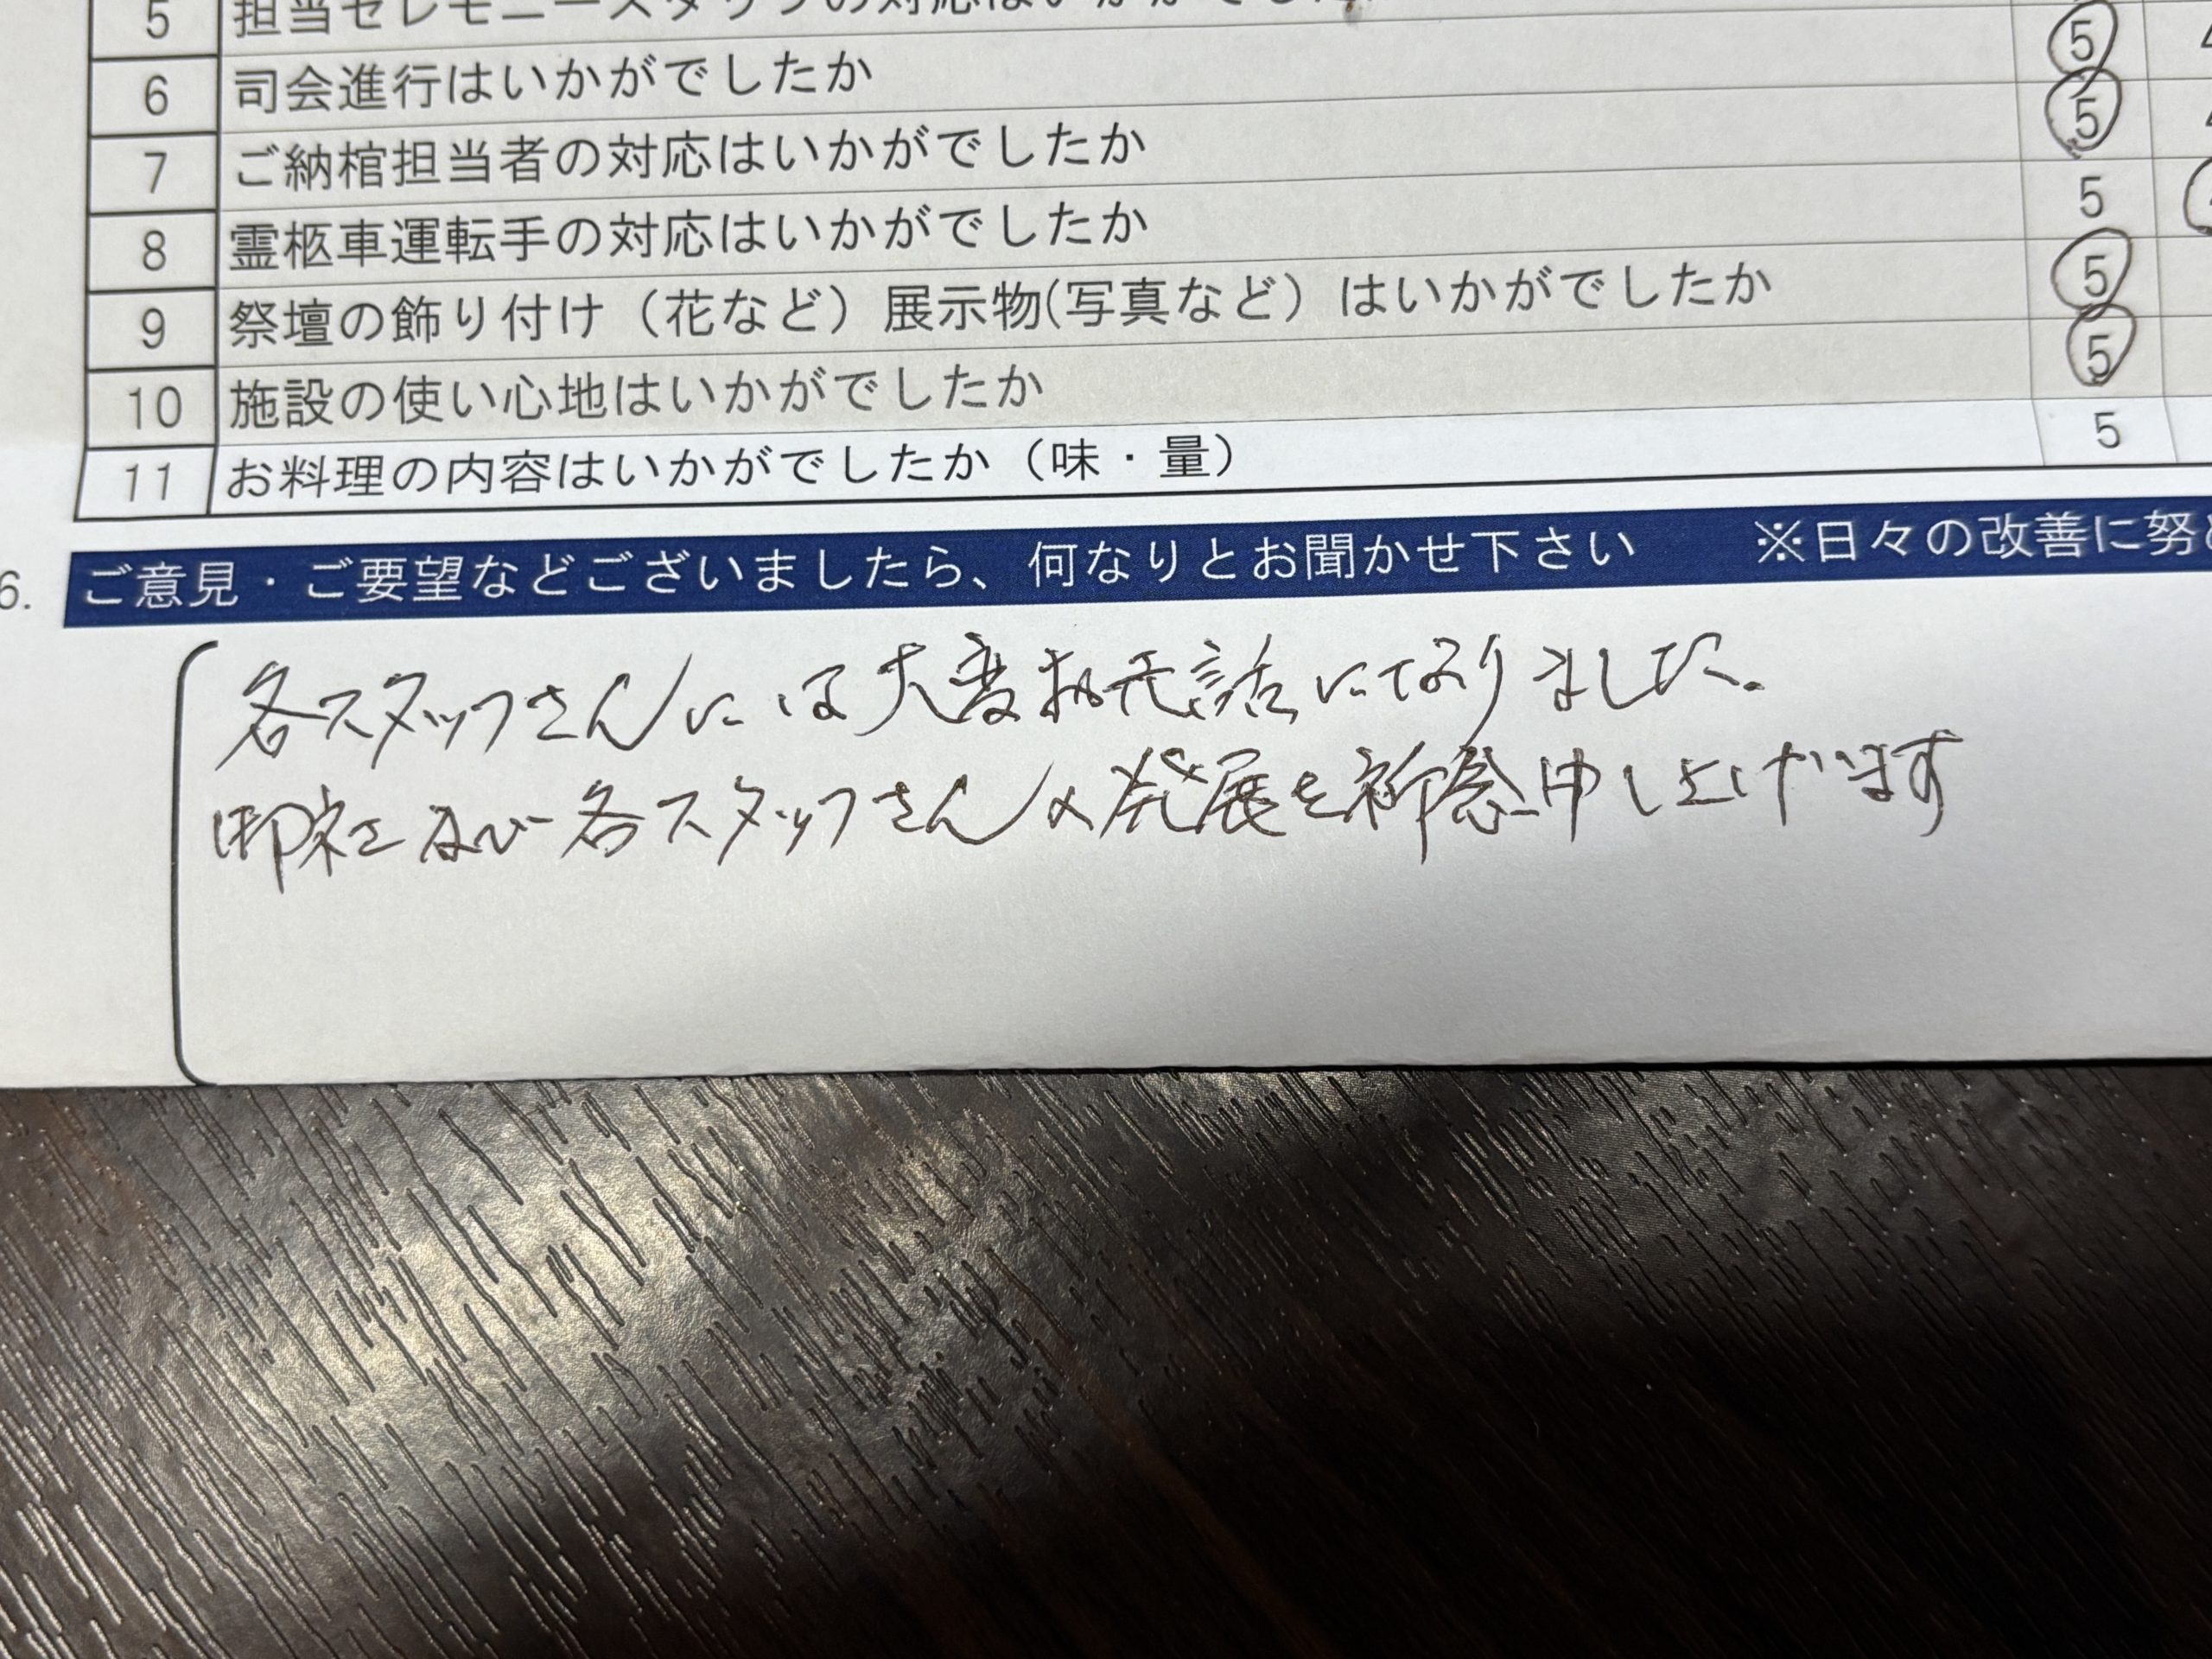 5 担当セレモニースタッフの対応はいかがでした
6 司会進行はいかがでしたか 5
7 ご納棺担当者の対応はいかがでしたか 5
8 霊柩車運転手の対応はいかがでしたか 5
9 祭壇の飾り付け（花など）展示物(写真など）はいかがでしたか 5
10 施設の使い心地はいかがでしたか 5
11 お料理の内容はいかがでしたか（味・量） 5
6. ご意見・ご要望などございましたら、何なりとお聞かせ下さい ※日々の改善に努
各スタッフさんには大変お世話になりました。
御社及び各スタッフさんの発展を祈念申し上げます